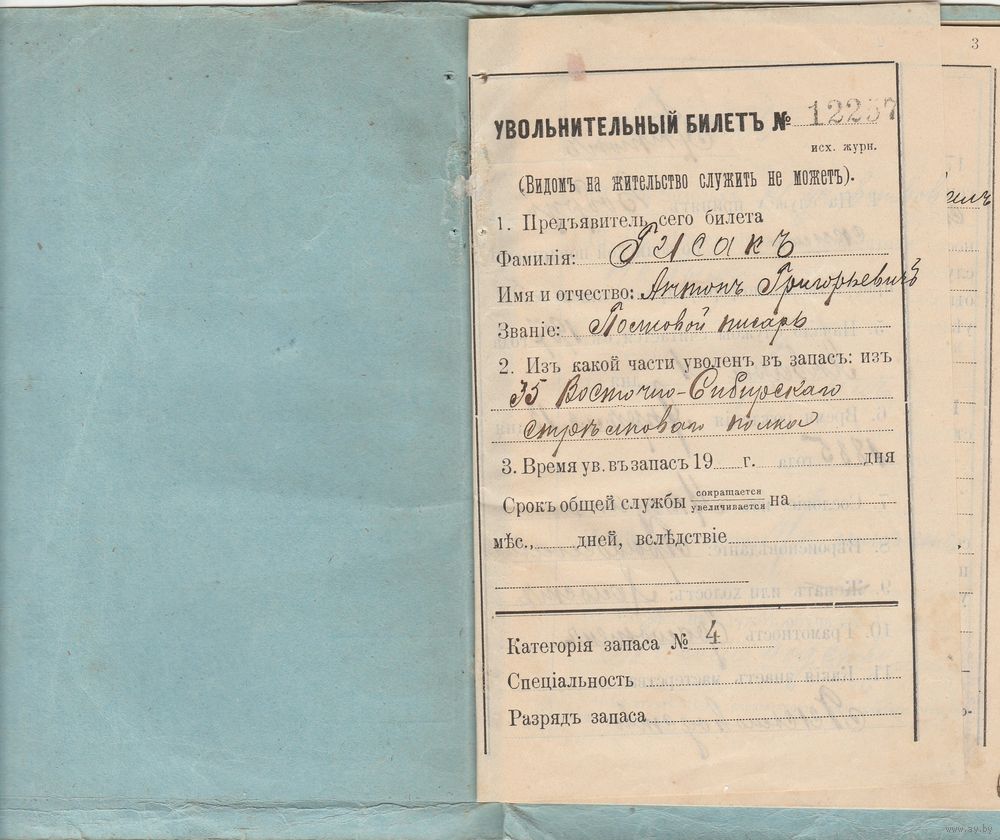 3
УВОЛЬНИТЕЛЬНЫЙ БИЛЕТЪ № 12237
исх. журн.
(Видомъ на жительство служить не можетъ).
1. Предъявитель сего билета
Фамилія: Гусакъ
Имя и отчество: Антонъ Григорьевичъ
Званіе: Полковой писарь
2. Изъ какой части уволенъ въ запасъ: изъ
35 Восточно-Сибирскаго
стрѣлковаго полка
3. Время ув. въ запасъ 19 г. дня
Срокъ общей службы сокращается увеличивается на
мѣс., дней, вслѣдствіе
Категорія запаса № 4
Спеціальность
Разрядъ запаса
www.ay.by